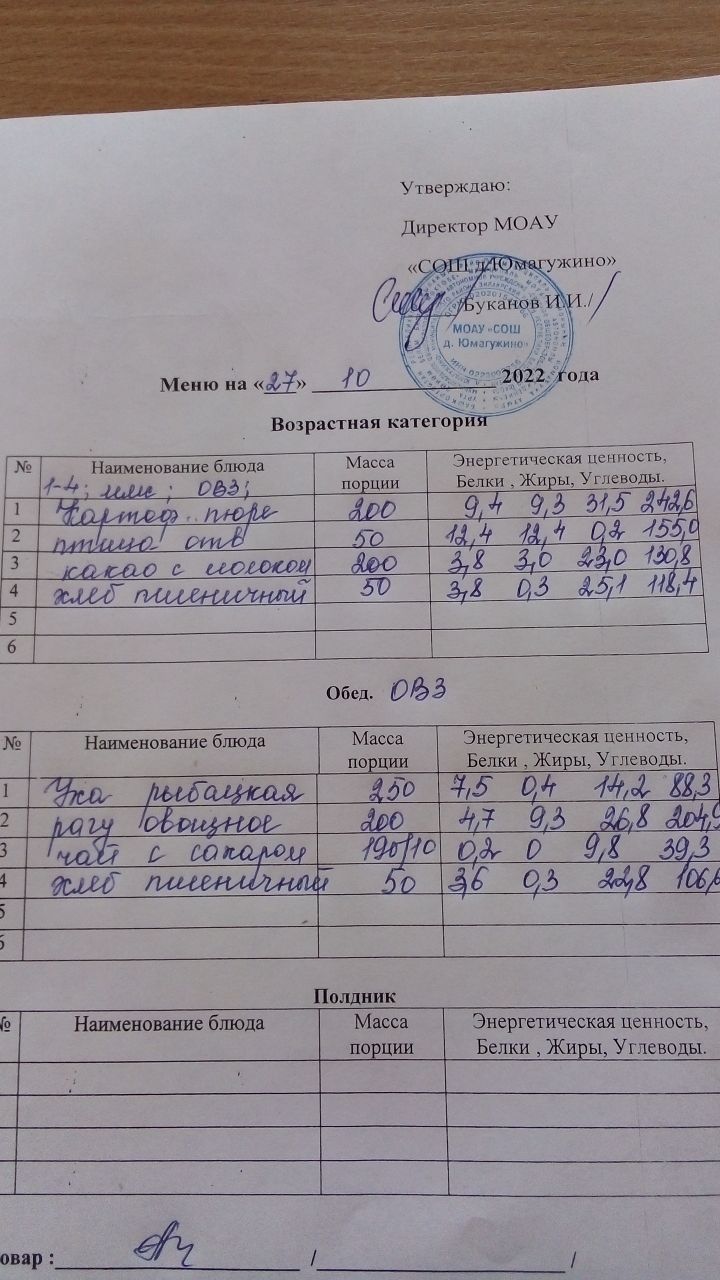 Утверждаю:
Директор МОАУ
«СОШ д.Юмагужино»
/Буканов И.И./
МОАУ «СОШ
д. Юмагужино»
Меню на «27» 10 2022 года
Возрастная категория
№ Наименование блюда Масса порции Энергетическая ценность, Белки , Жиры, Углеводы.
1-4; ОВЗ;
1 Картоф. пюре 200 9,4 9,3 31,5 242,6
2 птица отв 50 12,4 12,4 0,2 155,0
3 какао с молоком 200 3,8 3,0 23,0 130,8
4 хлеб пшеничный 50 3,8 0,3 25,1 118,4
5
6
Обед. ОВЗ
№ Наименование блюда Масса порции Энергетическая ценность, Белки , Жиры, Углеводы.
1 Уха рыбацкая 250 7,5 0,4 14,2 88,3
2 рагу овощное 200 4,7 9,3 26,8 204,9
3 чай с сахаром 190/10 0,2 0 9,8 39,3
4 хлеб пшеничный 50 3,6 0,3 22,8 106,6
5
6
Полдник
№ Наименование блюда Масса порции Энергетическая ценность, Белки , Жиры, Углеводы.
овар : / /